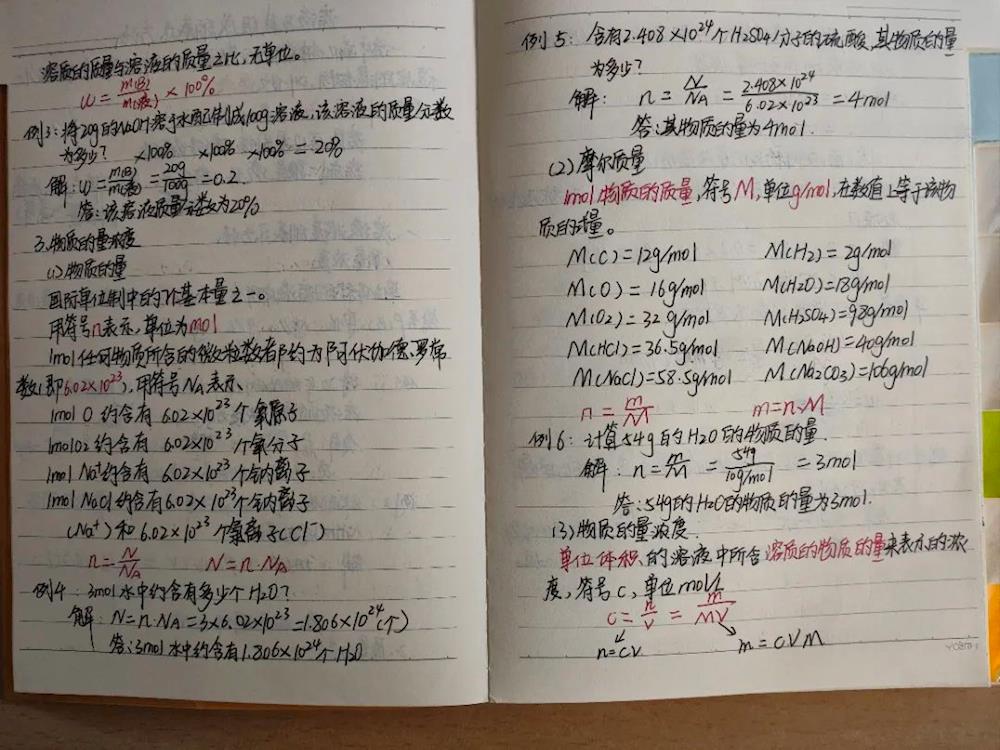 溶质的质量与溶液的质量之比,无单位。
ω = m(B)/m(液) × 100%
例3:将20g的NaOH溶于水配制成100g溶液,该溶液的质量分数
为多少? ×100% ×100% ×100% = 20%
解:ω = m(B)/m(液) = 20g/100g = 0.2.
答:该溶液质量分数为20%
3.物质的量浓度
(1)物质的量
国际单位制中的7个基本量之一。
用符号n表示,单位为mol
1mol任何物质所含的微粒数者都约为阿伏加德罗常
数(即6.02×10²³),用符号NA表示.
1mol O 约含有 6.02×10²³个氧原子
1mol O2 约含有 6.02×10²³个氧分子
1mol Na⁺约含有 6.02×10²³个钠离子
1mol NaCl约含有6.02×10²³个钠离子
(Na⁺)和6.02×10²³个氯离子(Cl⁻)
n = N/NA N = n·NA
例4:3mol水中约含有多少个H2O?
解:N = n·NA = 3×6.02×10²³ = 1.806×10²⁴(个)
答:3mol水中约含有1.806×10²⁴个H2O
例5:含有2.408×10²⁴个H2SO4分子的硫酸,其物质的量
为多少?
解: n = N/NA = 2.408×10²⁴/6.02×10²³ = 4mol
答:其物质的量为4mol.
(2)摩尔质量
1mol物质的质量,符号M,单位g/mol,在数值上等于该物
质的式量。
M(C) = 12g/mol M(H2) = 2g/mol
M(O) = 16g/mol M(H2O) = 18g/mol
M(O2) = 32g/mol M(H2SO4) = 98g/mol
M(HCl) = 36.5g/mol M(NaOH) = 40g/mol
M(NaCl) = 58.5g/mol M(Na2CO3) = 106g/mol
n = m/M m = n·M
例6:计算54g的H2O的物质的量.
解: n = m/M = 54g/18g/mol = 3mol
答:54g的H2O的物质的量为3mol.
(3)物质的量浓度
单位体积的溶液中所含溶质的物质的量来表示的浓
度,符号c,单位mol/L
c = n/V = m/MV
n=cV m = cVM